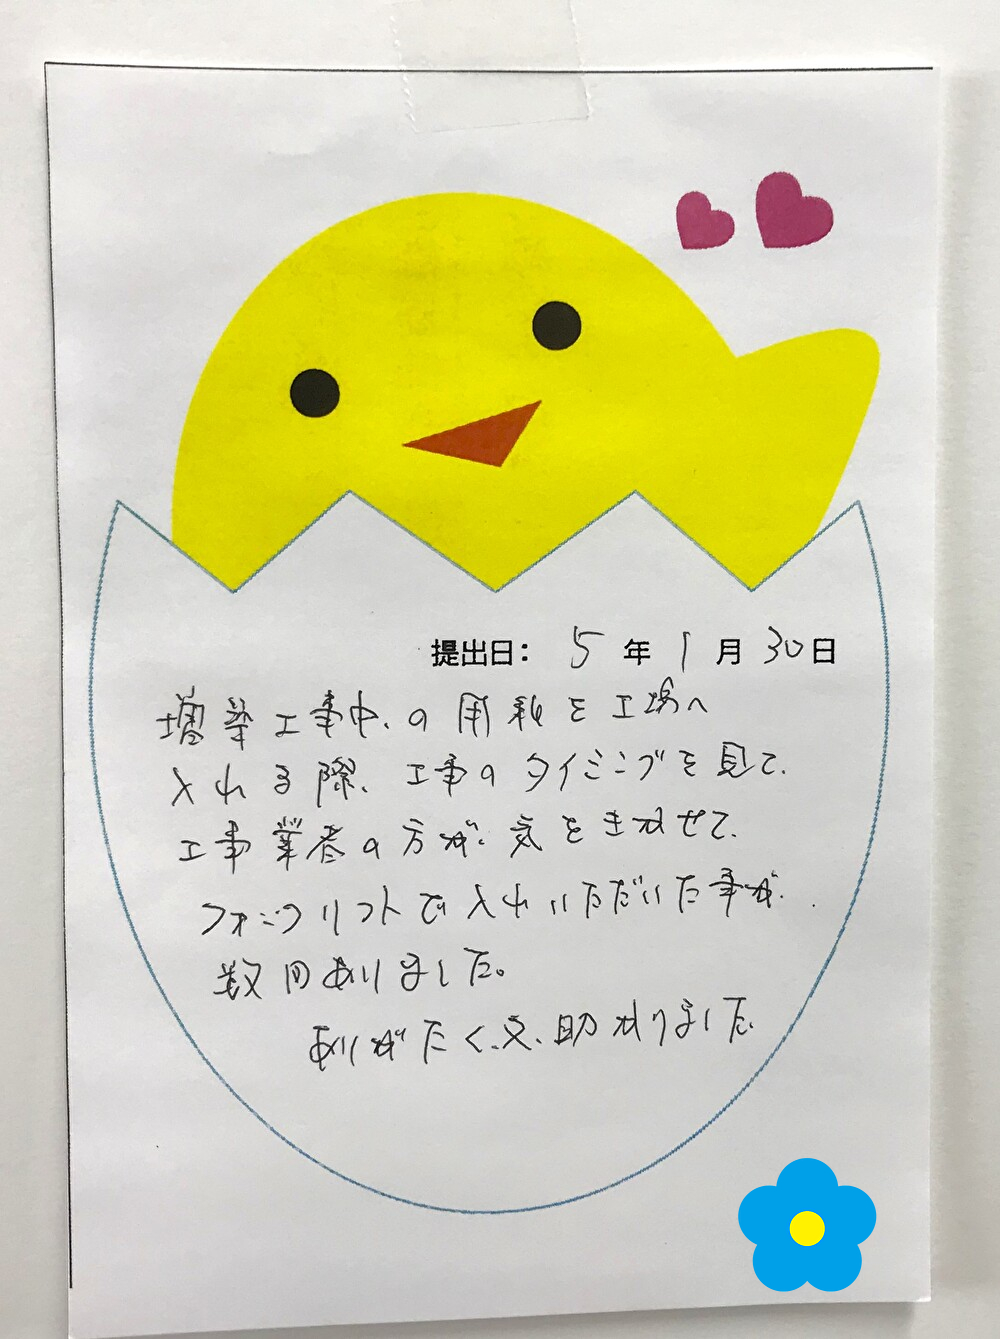 提出日: 5年1月30日
増築工事中、の用紙を工場へ
入れる際、工事のタイミングを見て、
工事業者の方が、気をきかせて、
フォークリフトで入れいただいた事が、
数回ありました。
ありがたく、又、助かりました